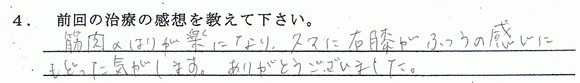 4. 前回の治療の感想を教えて下さい。
筋肉のはりが楽になり、タマに右膝がふつうの感じに
もどった気がします。ありがとうございました。